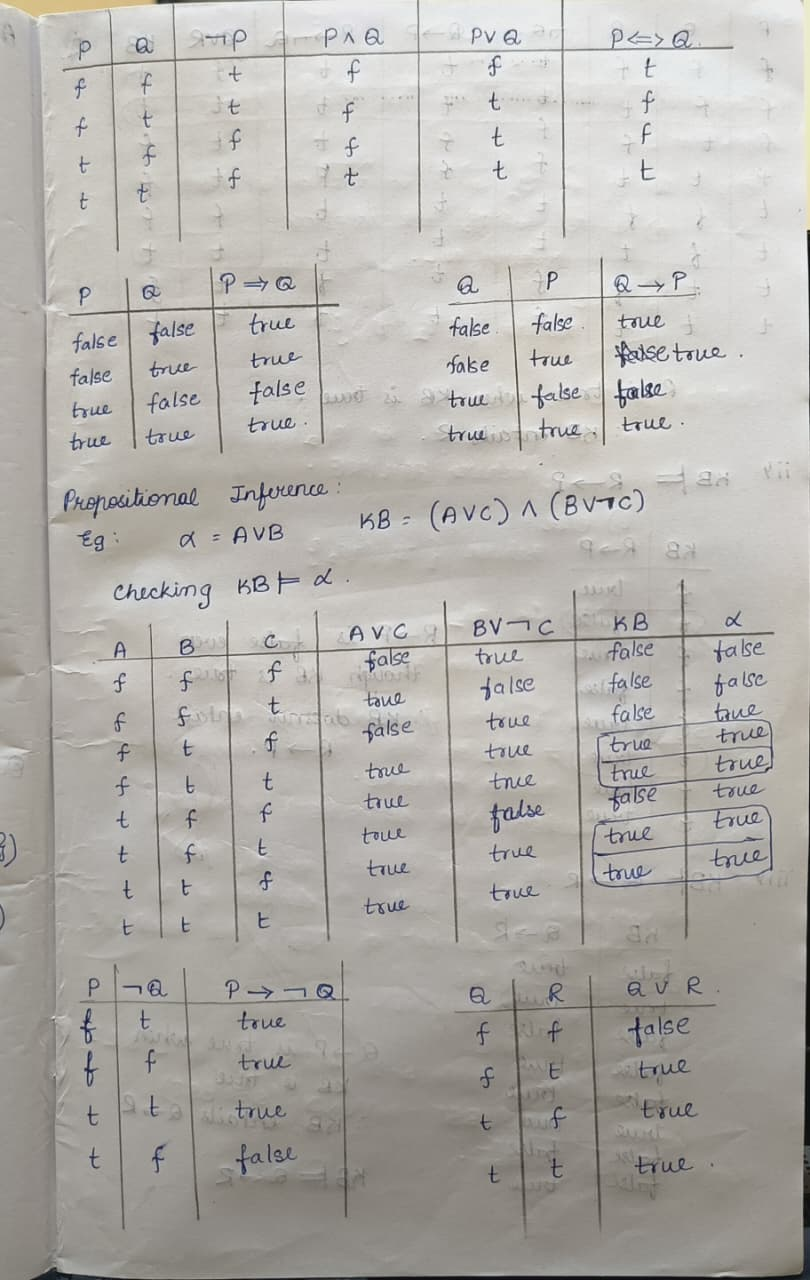 P Q ¬P P ∧ Q P ∨ Q P ⇔ Q
f f t f f t
f t t f t f
t f f f t f
t t f t t t
P Q P ⇒ Q
false false true
false true true
true false false
true true true.
Q P Q → P
false false true
false true true.
true false false
true true true.
Propositional Inference:
Eg: α = A∨B KB = (A∨C) ∧ (B∨¬C)
Checking KB ⊨ α.
A B C A∨C B∨¬C KB α
f f f false true false false
f f t true false false false
f t f false true false true
f t t true true true true
t f f true true true true
t f t true false false true
t t f true true true true
t t t true true true true
P ¬Q P → ¬Q
f t true
f f true
t t true
t f false
Q R Q ∨ R.
f f false
f t true
t f true
t t true.